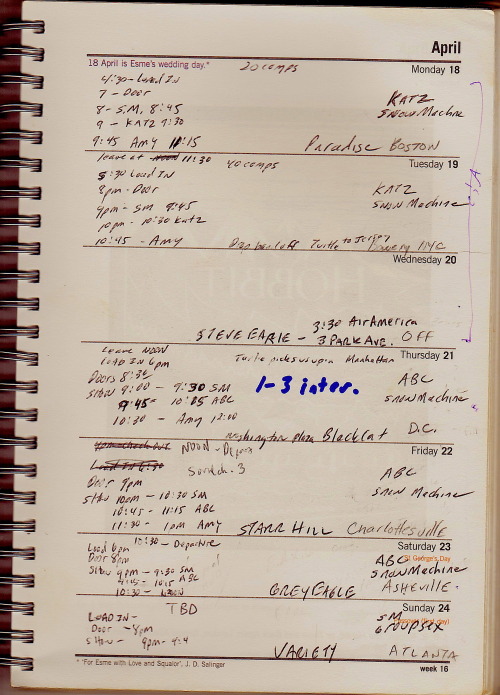 April
18 April is Esme's wedding day.* 20 comps Monday 18
4:30 - Load IN
7 - Door KATZ
8 - S.M. 8:45 SNOW Machine
9 - KATZ 9:30
9:45 Amy 11:15 Paradise BOSTON
leave at 11:30 40 comps Tuesday 19
5:30 Load IN
8pm - Door KATZ
9pm - SM 9:45 SNOW Machine
10pm - 10:30 Katz
10:45 - Amy Drop her off Turtle to Jersey Bowery NYC
Wednesday 20
3:30 Air America
STEVE EARLE - 3 PARK AVE. OFF
Leave NOON Turtle picks us up in Manhattan Thursday 21
LOAD IN 6pm
Doors 8:30 1-3 inter. ABC
SHOW 9:00 - 9:30 SM SNOW Machine
9:45 - 10:15 ABC
10:30 - Amy 12:00
Washington Plaza Blackcat D.C.
NOON - Depart Friday 22
Load IN 6:30
Door 9pm ABC
Show 10pm - 10:30 SM SNOW Machine
10:45 - 11:15 ABC
11:30 - 1am Amy STARR HILL Charlottesville
10:30 - Departure Saturday 23
Load 6pm
Door 8pm ABC St George's Day
Show 9pm - 9:30 SM SNOW Machine
9:45 - 10:15 ABC
10:30 - GREY EAGLE ASHEVILLE.
TBD Sunday 24
LOAD IN - SM
Door - 8pm GROUPSEX
SHOW - 9pm -
VARIETY ATLANTA
* 'For Esme with Love and Squalor', J. D. Salinger week 16